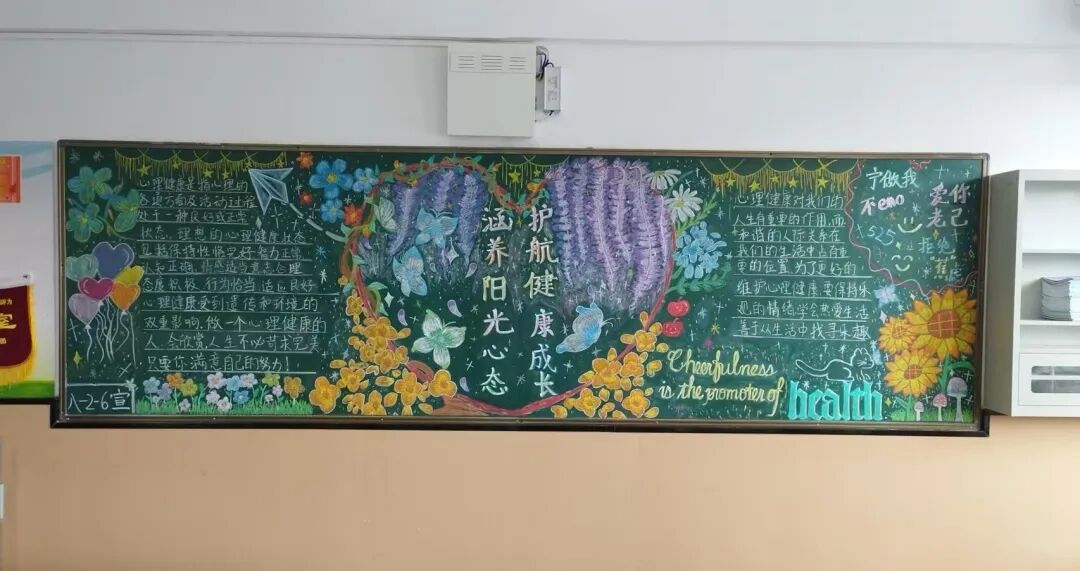 心理健康是指心理的
各项方面及活动过程
处于一种良好或正常
状态。理想的心理健康状态
包括保持性格完好、智力正常、
认知正确、情感适当、意志合理、
态度积极、行为恰当、适应良好
心理健康受到遗传和环境的
双重影响,做一个心理健康的
人,会欣赏人生不必苛求完美
只要你满意自己的努力!
八-2-6宣
涵养阳光心态
护航健康成长
心理健康对我们的
人生有重要的作用,而
和谐的人际关系在
我们的生活中占有重
要的位置,为了更好的
维护心理健康,要保持乐
观的情绪,学会热爱生活
善于从生活中找寻乐趣
Cheerfulness
is the promoter of
health
宁做我
不emo
525
爱你
老己
拒绝
"蕉"
虑